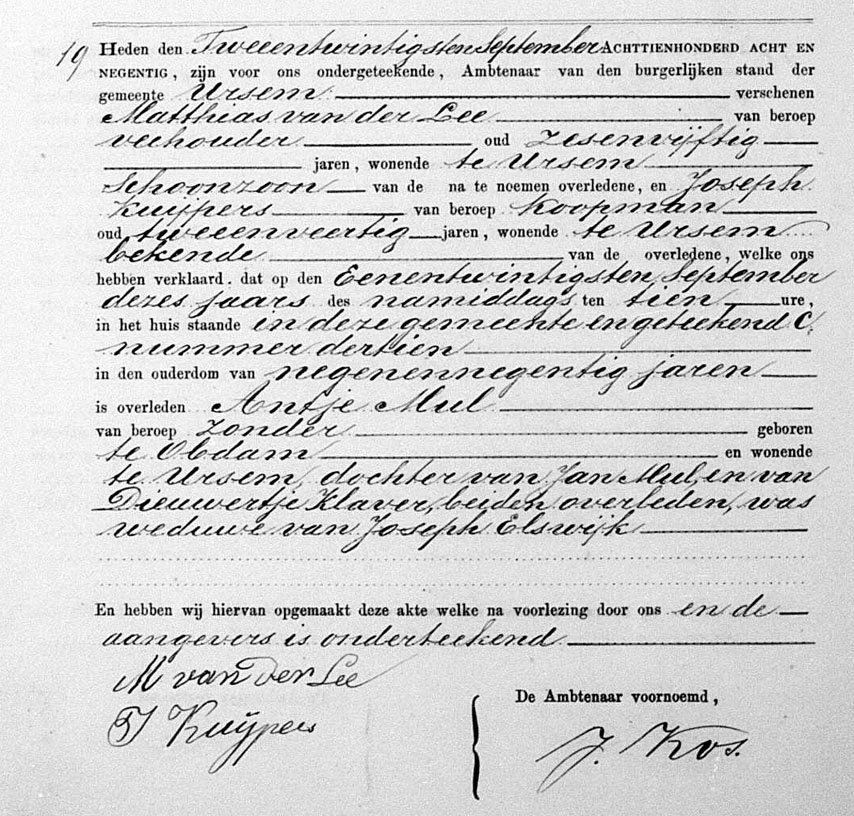 19 Heden den Tweeentwintigsten September ACHTTIENHONDERD ACHT EN
NEGENTIG, zijn voor ons ondergeteekende, Ambtenaar van den burgerlijken stand der
gemeente Ursem verschenen
Matthias van der Lee van beroep
veehouder oud zesenvijftig
jaren, wonende te Ursem
Schoonzoon van de na te noemen overledene, en Joseph
Kuijpers van beroep Koopman
oud tweeenveertig jaren, wonende te Ursem
bekende van de overledene, welke ons
hebben verklaard. dat op den Eenentwintigsten September
dezes jaars des namiddags ten tien ure,
in het huis staande in deze gemeente en geteekend C,
nummer dertien
in den ouderdom van negenennegentig jaren
is overleden Antje Mul
van beroep zonder geboren
te Obdam en wonende
te Ursem, dochter van Jan Mul, en van
Dieuwertje Klaver, beiden overleden, was
weduwe van Joseph Elswijk
En hebben wij hiervan opgemaakt deze akte welke na voorlezing door ons en de
aangevers is onderteekend
M van der Lee
De Ambtenaar voornoemd,
J Kuijpers
J. Kos.